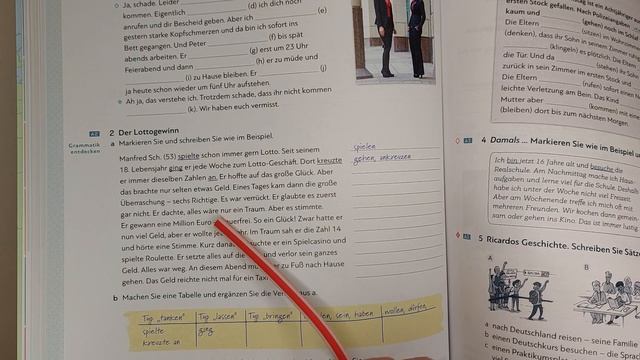 Ja, schade. Leider (d) ich dich noch
kommen. Eigentlich (e)
anrufen und dir Bescheid geben. Aber ich
gestern starke Kopfschmerzen und da bin ich sofort ins
Bett gegangen. Und Peter (f) bis spät
abends arbeiten. Er (g) erst um 23 Uhr
Feierabend und dann (h) er zu müde und
(i) zu Hause bleiben. Er (j)
ja heute schon wieder um fünf Uhr aufstehen.
Ah ja, das verstehe ich. Trotzdem schade, dass ihr nicht kommen
(k). Wir haben euch vermisst.
A2 2 Der Lottogewinn
Grammatik entdecken
a Markieren Sie und schreiben Sie wie im Beispiel.
Manfred Sch. (53) spielte schon immer gern Lotto. Seit seinem
18. Lebensjahr ging er jede Woche zum Lotto-Geschäft. Dort kreuzte
er immer dieselben Zahlen an. Er hoffte auf das große Glück. Aber
das brachte nur selten etwas Geld. Eines Tages kam dann die große
Überraschung – sechs Richtige. Es war verrückt. Er glaubte es zuerst
gar nicht. Er dachte, alles wäre nur ein Traum. Aber es stimmte.
Er gewann eine Million Euro So ein Glück! Zwar hatte er
nun viel Geld, aber er wollte Im Traum sah er die Zahl 14
und hörte eine Stimme. Kurz er ein Spielcasino und
spielte Roulette. Er setzte alles auf und verlor sein ganzes
Geld. Alles war weg. An diesem Abend er zu Fuß nach Hause
gehen. Das Geld reichte nicht mal für ein
spielen
gehen, ankreuzen
b Machen Sie eine Tabelle und ergänzen Sie die aus a.
Typ „tanken“ Typ „lassen“ Typ „bringen“ sein, haben wollen, dürfen
spielte ging
kreuzte an
ersten Stock gefallen. Nach Polizeiangaben
kaum und
Die Eltern
(denken), dass ihr Sohn in seinem Zimmer
(klingeln) es plötzlich. Die Eltern
die Tür. Und da
zurück in sein Zimmer im ersten Stock und
Die Eltern (rufen) sofort einen
leichte Verletzung am Bein. Das Kind
Mutter aber (kommen) mit
(bleiben) dort bis zum nächsten Morgen.
A3 4 Damals ... Markieren Sie im Beispiel
Ich bin jetzt 16 Jahre alt und besuche die
Realschule. Am Nachmittag mache ich Haus-
aufgaben und lerne viel für die Schule. Deshalb
habe ich unter der Woche nicht viel Freizeit.
Aber am Wochenende treffe ich mich oft mit
mehreren Freunden. Wir kochen dann gemein-
sam oder gehen ins Kino. Das ist immer lustig
A3 5 Ricardos Geschichte. Schreiben Sie
A
B
a nach Deutschland reisen – seine Familie
b einen Deutschkurs besuchen – die
c einen Praktikumsplatz